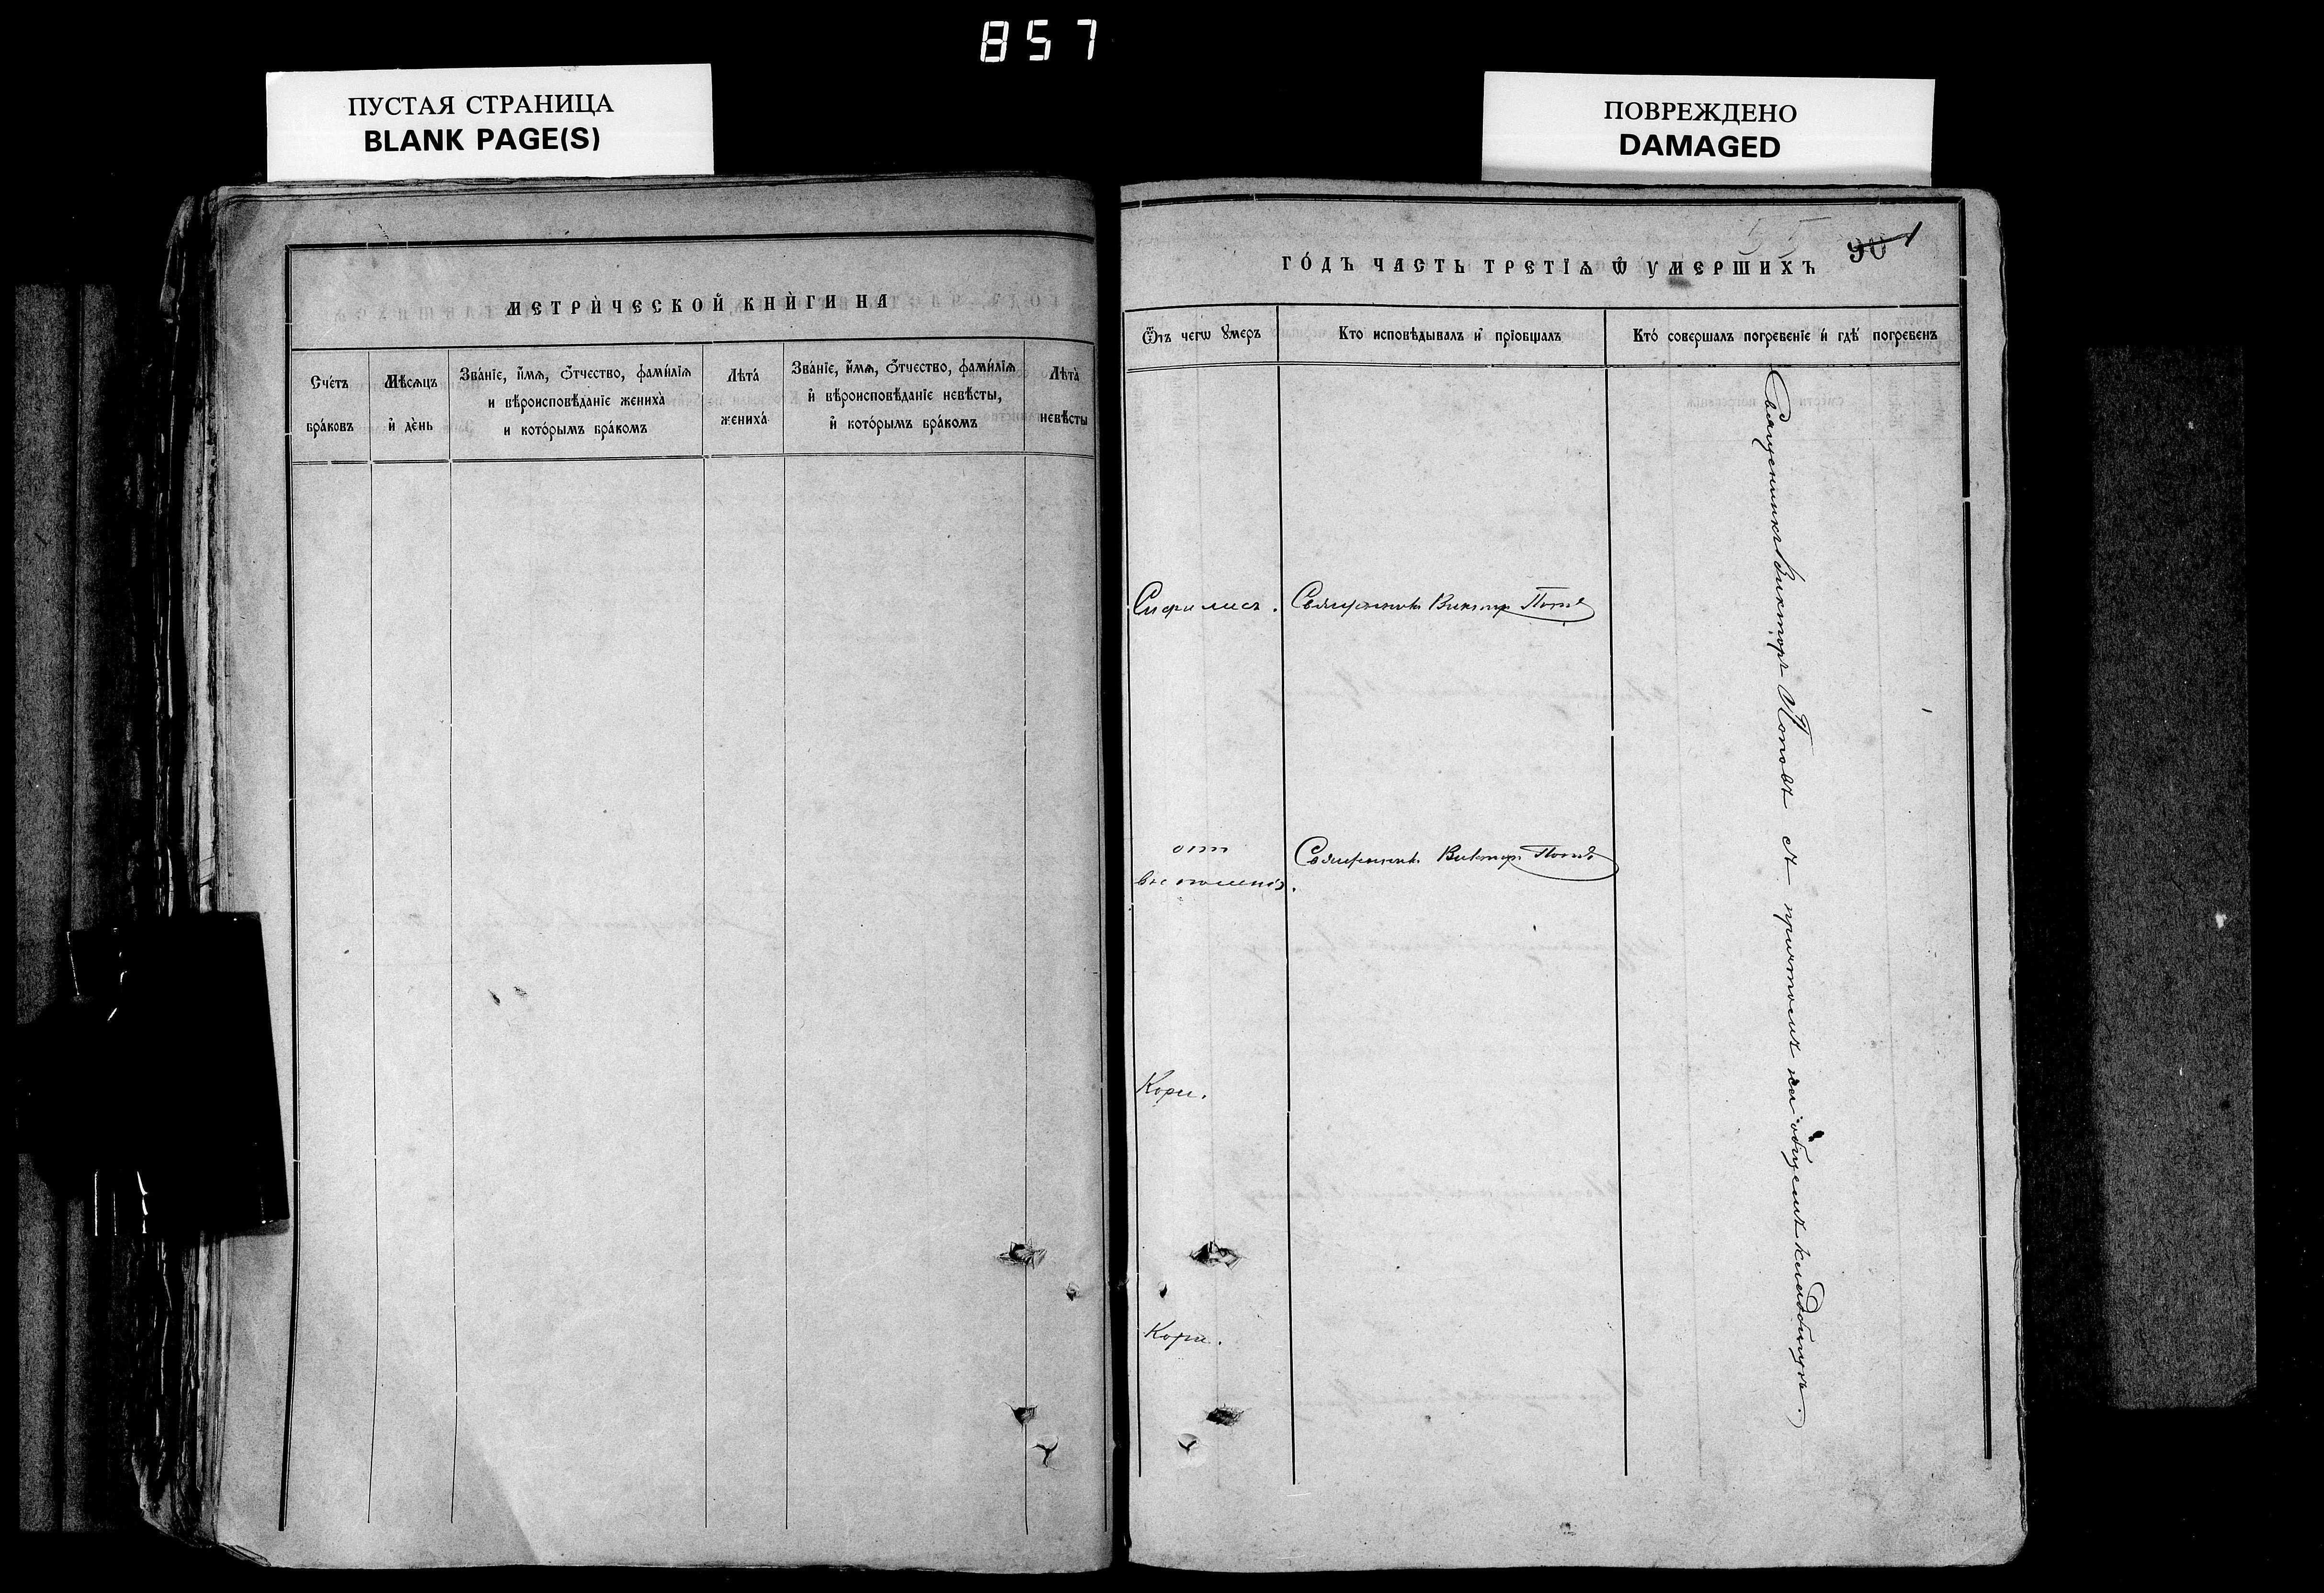 857
ПУСТАЯ СТРАНИЦА
BLANK PAGE(S)
ПОВРЕЖДЕНО
DAMAGED
МЕТРИ́ЧЕСКОЙ КНИ́ГИ НА
Сче́тъ
бра́ковъ
Мѣ́сѧцъ
и҆ де́нь
Зва́нїе, и҆́мѧ, ѻ҆́тчество, фами́лїѧ
и вѣроисповѣ́данїе жениха̀
и кото́рымъ бра́комъ
Лѣта̀
жениха̀
Зва́нїе, и҆́мѧ, ѻ҆́тчество, фами́лїѧ
и҆ вѣроисповѣ́данїе невѣ́сты,
и҆ кото́рымъ бра́комъ
Лѣта̀
невѣ́сты
55
90
1
ГО́ДЪ ЧАСТЬ ТРЕТЇѦ Ѽ УМЕРШИХЪ
Ѿтъ чегѡ ꙋмеръ
Кто исповѣдывалъ и҆ прїобщалъ
Кто́ совершалъ погребенїе и́ гдѣ́ погребенъ
Сифилисъ.
Священникъ Викторъ Поповъ
отъ
воспаленія.
Священникъ Викторъ Поповъ
Кори.
Кори.
Священникъ Викторъ Поповъ съ причтомъ на общемъ кладбищѣ.